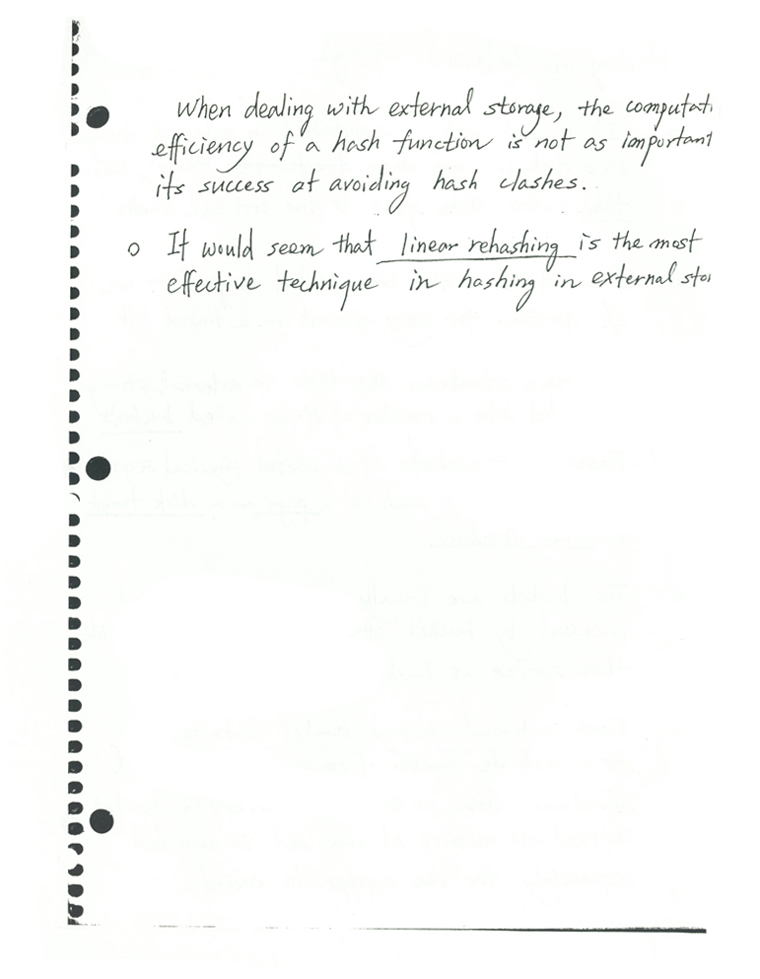 When dealing with external storage, the computati
efficiency of a hash function is not as important
its success at avoiding hash clashes.
o It would seem that linear rehashing is the most
effective technique in hashing in external stor